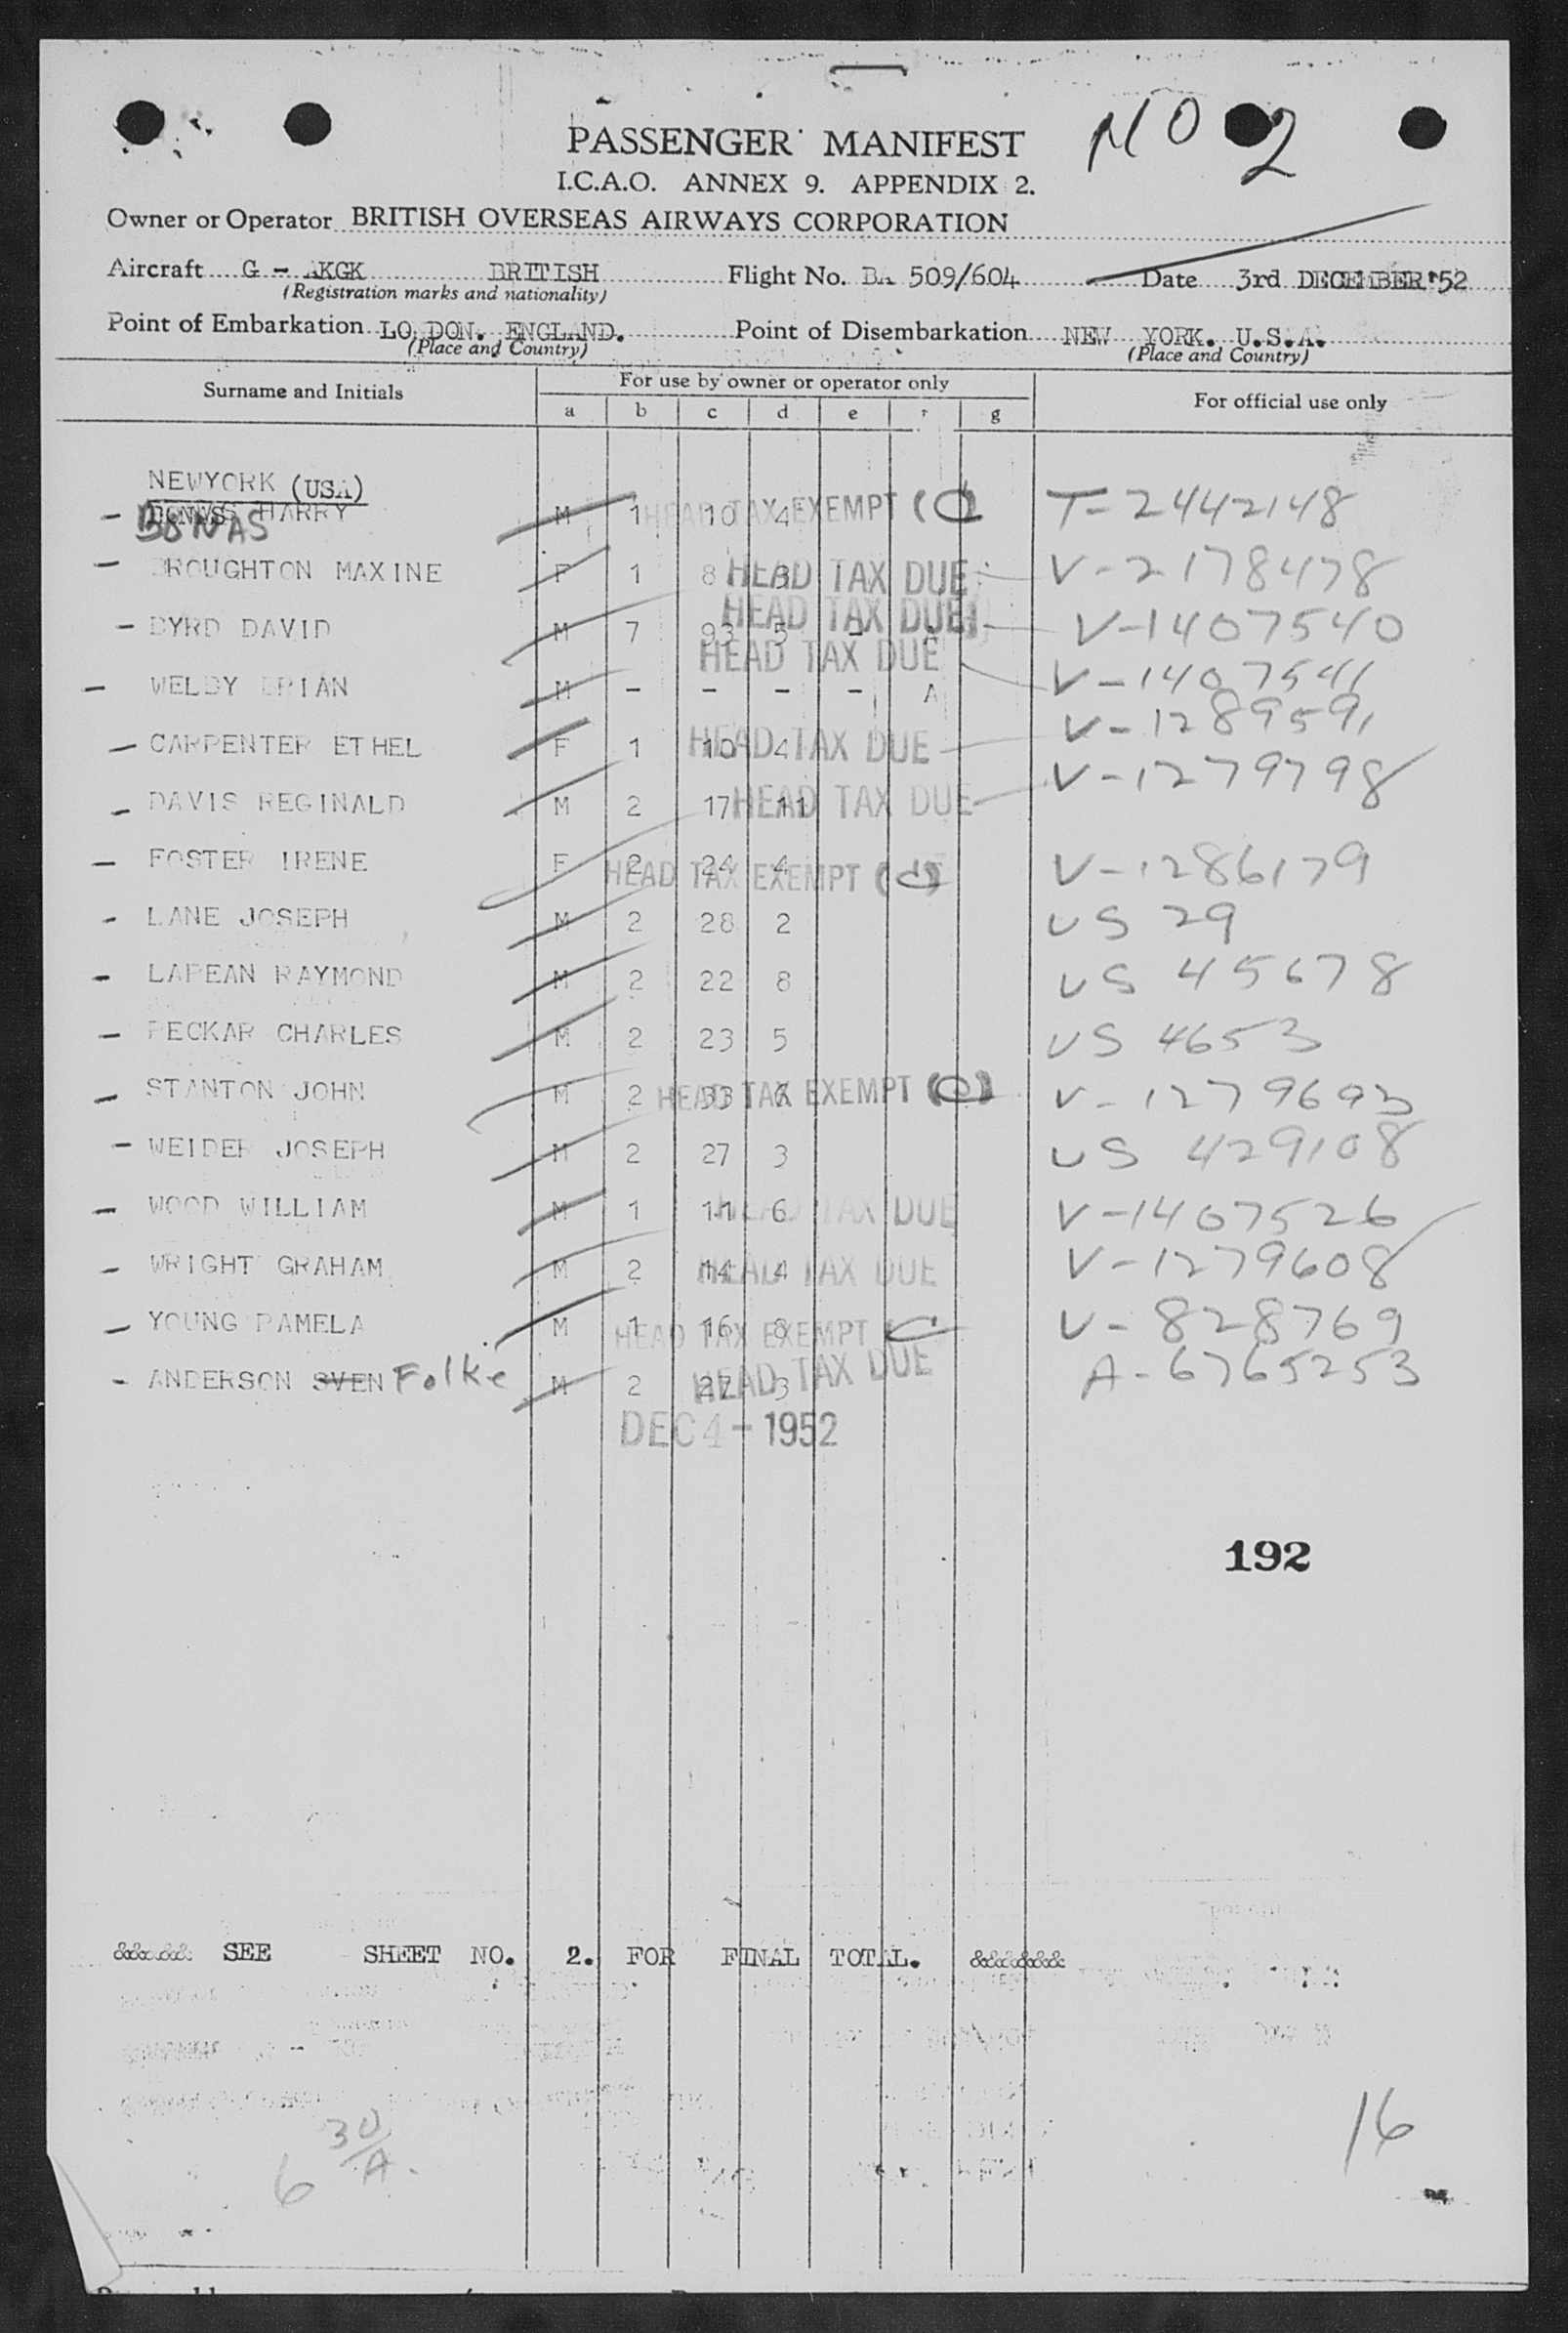 NO 2
PASSENGER MANIFEST
I.C.A.O. ANNEX 9. APPENDIX 2.
Owner or Operator BRITISH OVERSEAS AIRWAYS CORPORATION
Aircraft G - AKGK BRITISH Flight No. BA 509/604 Date 3rd DECEMBER '52
(Registration marks and nationality)
Point of Embarkation LO DON. ENGLAND. Point of Disembarkation NEW YORK. U.S.A.
(Place and Country) (Place and Country)
Surname and Initials For use by owner or operator only For official use only
a b c d e f g
NEWYORK (USA)
- HARRY M 1 10 4 HEAD TAX EXEMPT (C) T-2442148
BONAS
- BROUGHTON MAXINE F 1 8 3 HEAD TAX DUE V-2178478
- BYRD DAVID M 7 93 5 - HEAD TAX DUE V-1407540
HEAD TAX DUE
- WELBY BRIAN M - - - - A V-1407541
- CARPENTER ETHEL F 1 10 4 HEAD TAX DUE V-1289591
- DAVIS REGINALD M 2 17 11 HEAD TAX DUE V-1279798
- FOSTER IRENE F 2 24 4 HEAD TAX EXEMPT V-1286179
- LANE JOSEPH M 2 28 2 US 29
- LAPEAN RAYMOND M 2 22 8 US 45678
- PECKAR CHARLES M 2 23 5 US 4653
- STANTON JOHN M 2 33 6 HEAD TAX EXEMPT (C) V-1279693
- WEIDER JOSEPH M 2 27 3 US 429108
- WOOD WILLIAM M 1 11 6 HEAD TAX DUE V-1407526
- WRIGHT GRAHAM M 2 14 4 HEAD TAX DUE V-1279608
- YOUNG PAMELA M 1 16 8 HEAD TAX EXEMPT V-828769
- ANDERSON SVEN Folke M 2 27 3 HEAD TAX DUE A-6765253
DEC 4 - 1952
192
&&&&&& SEE SHEET NO. 2. FOR FINAL TOTAL. &&&&&&
30/A.
6
16